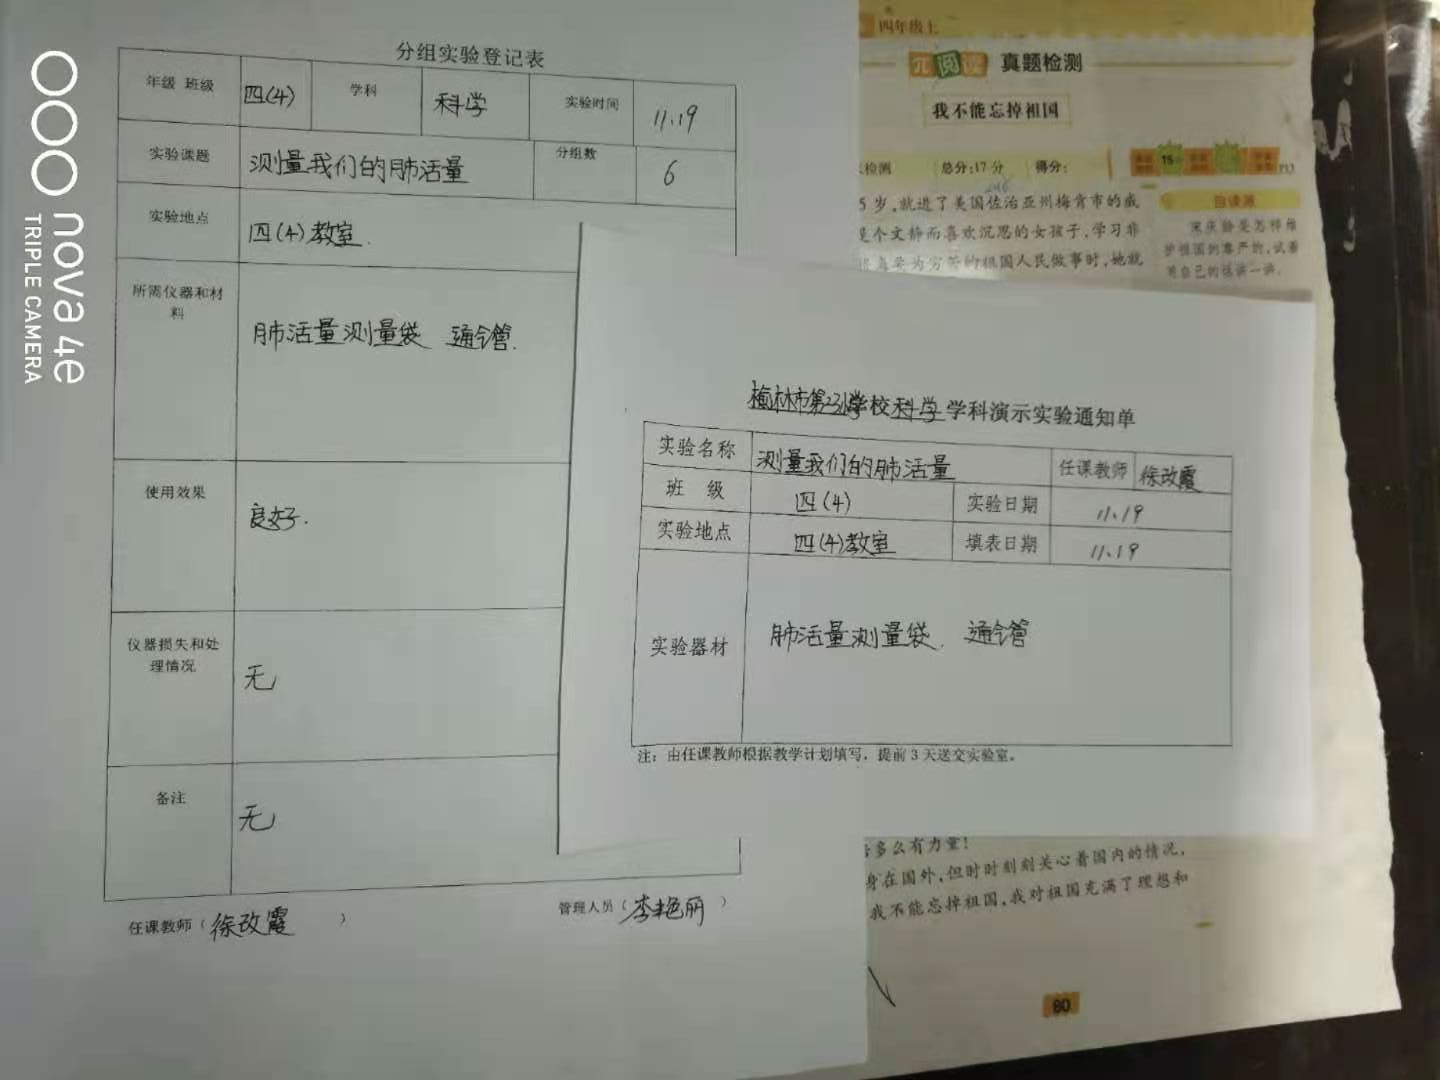 分组实验登记表
年级 班级 四(4) 学科 科学 实验时间 11.19
实验课题 测量我们的肺活量 分组数 6
实验地点 四(4)教室.
所需仪器和材
料
肺活量测量袋 通气管.
使用效果 良好.
仪器损失和处
理情况
无
备注 无
任课教师（徐改霞） 管理人员（李艳丽）
榆林市第23小学校科学学科演示实验通知单
实验名称 测量我们的肺活量 任课教师 徐改霞
班 级 四(4) 实验日期 11.19
实验地点 四(4)教室 填表日期 11.19
实验器材 肺活量测量袋. 通气管
注：由任课教师根据教学计划填写，提前3天送交实验室。
四年级上
阅读 真题检测
我不能忘掉祖国
检测 总分:17分 得分:
15
P13
5岁,就进了美国佐治亚州梅肯市的威
是个文静而喜欢沉思的女孩子,学习非
为穷苦的祖国人民做事时,她就
自读落
宋庆龄是怎样维
护祖国的尊严的,试着
用自己的话讲一讲.
多么有力量!
身在国外,但时时刻刻关心着国内的情况,
我不能忘掉祖国,我对祖国充满了理想和
80
nova 4e
TRIPLE CAMERA